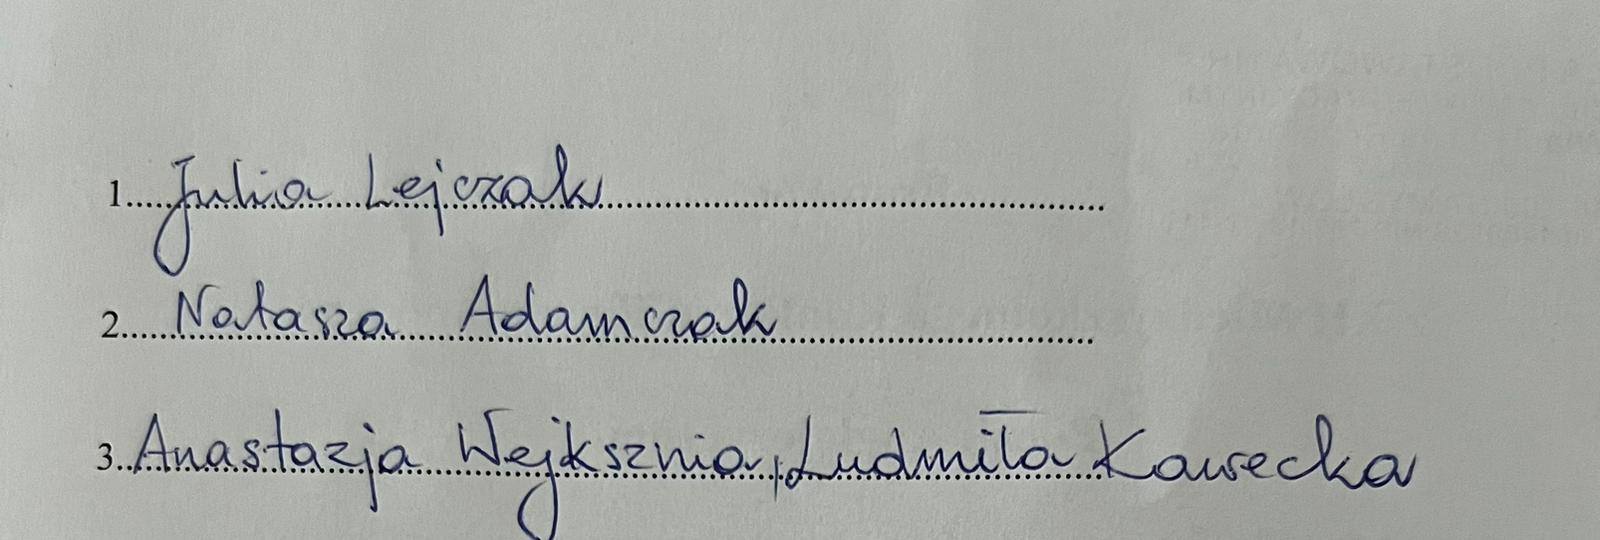 1. Julia Lejczak
2. Natasza Adamczak
3. Anastazja Wejksznia, Ludmiła Kawecka